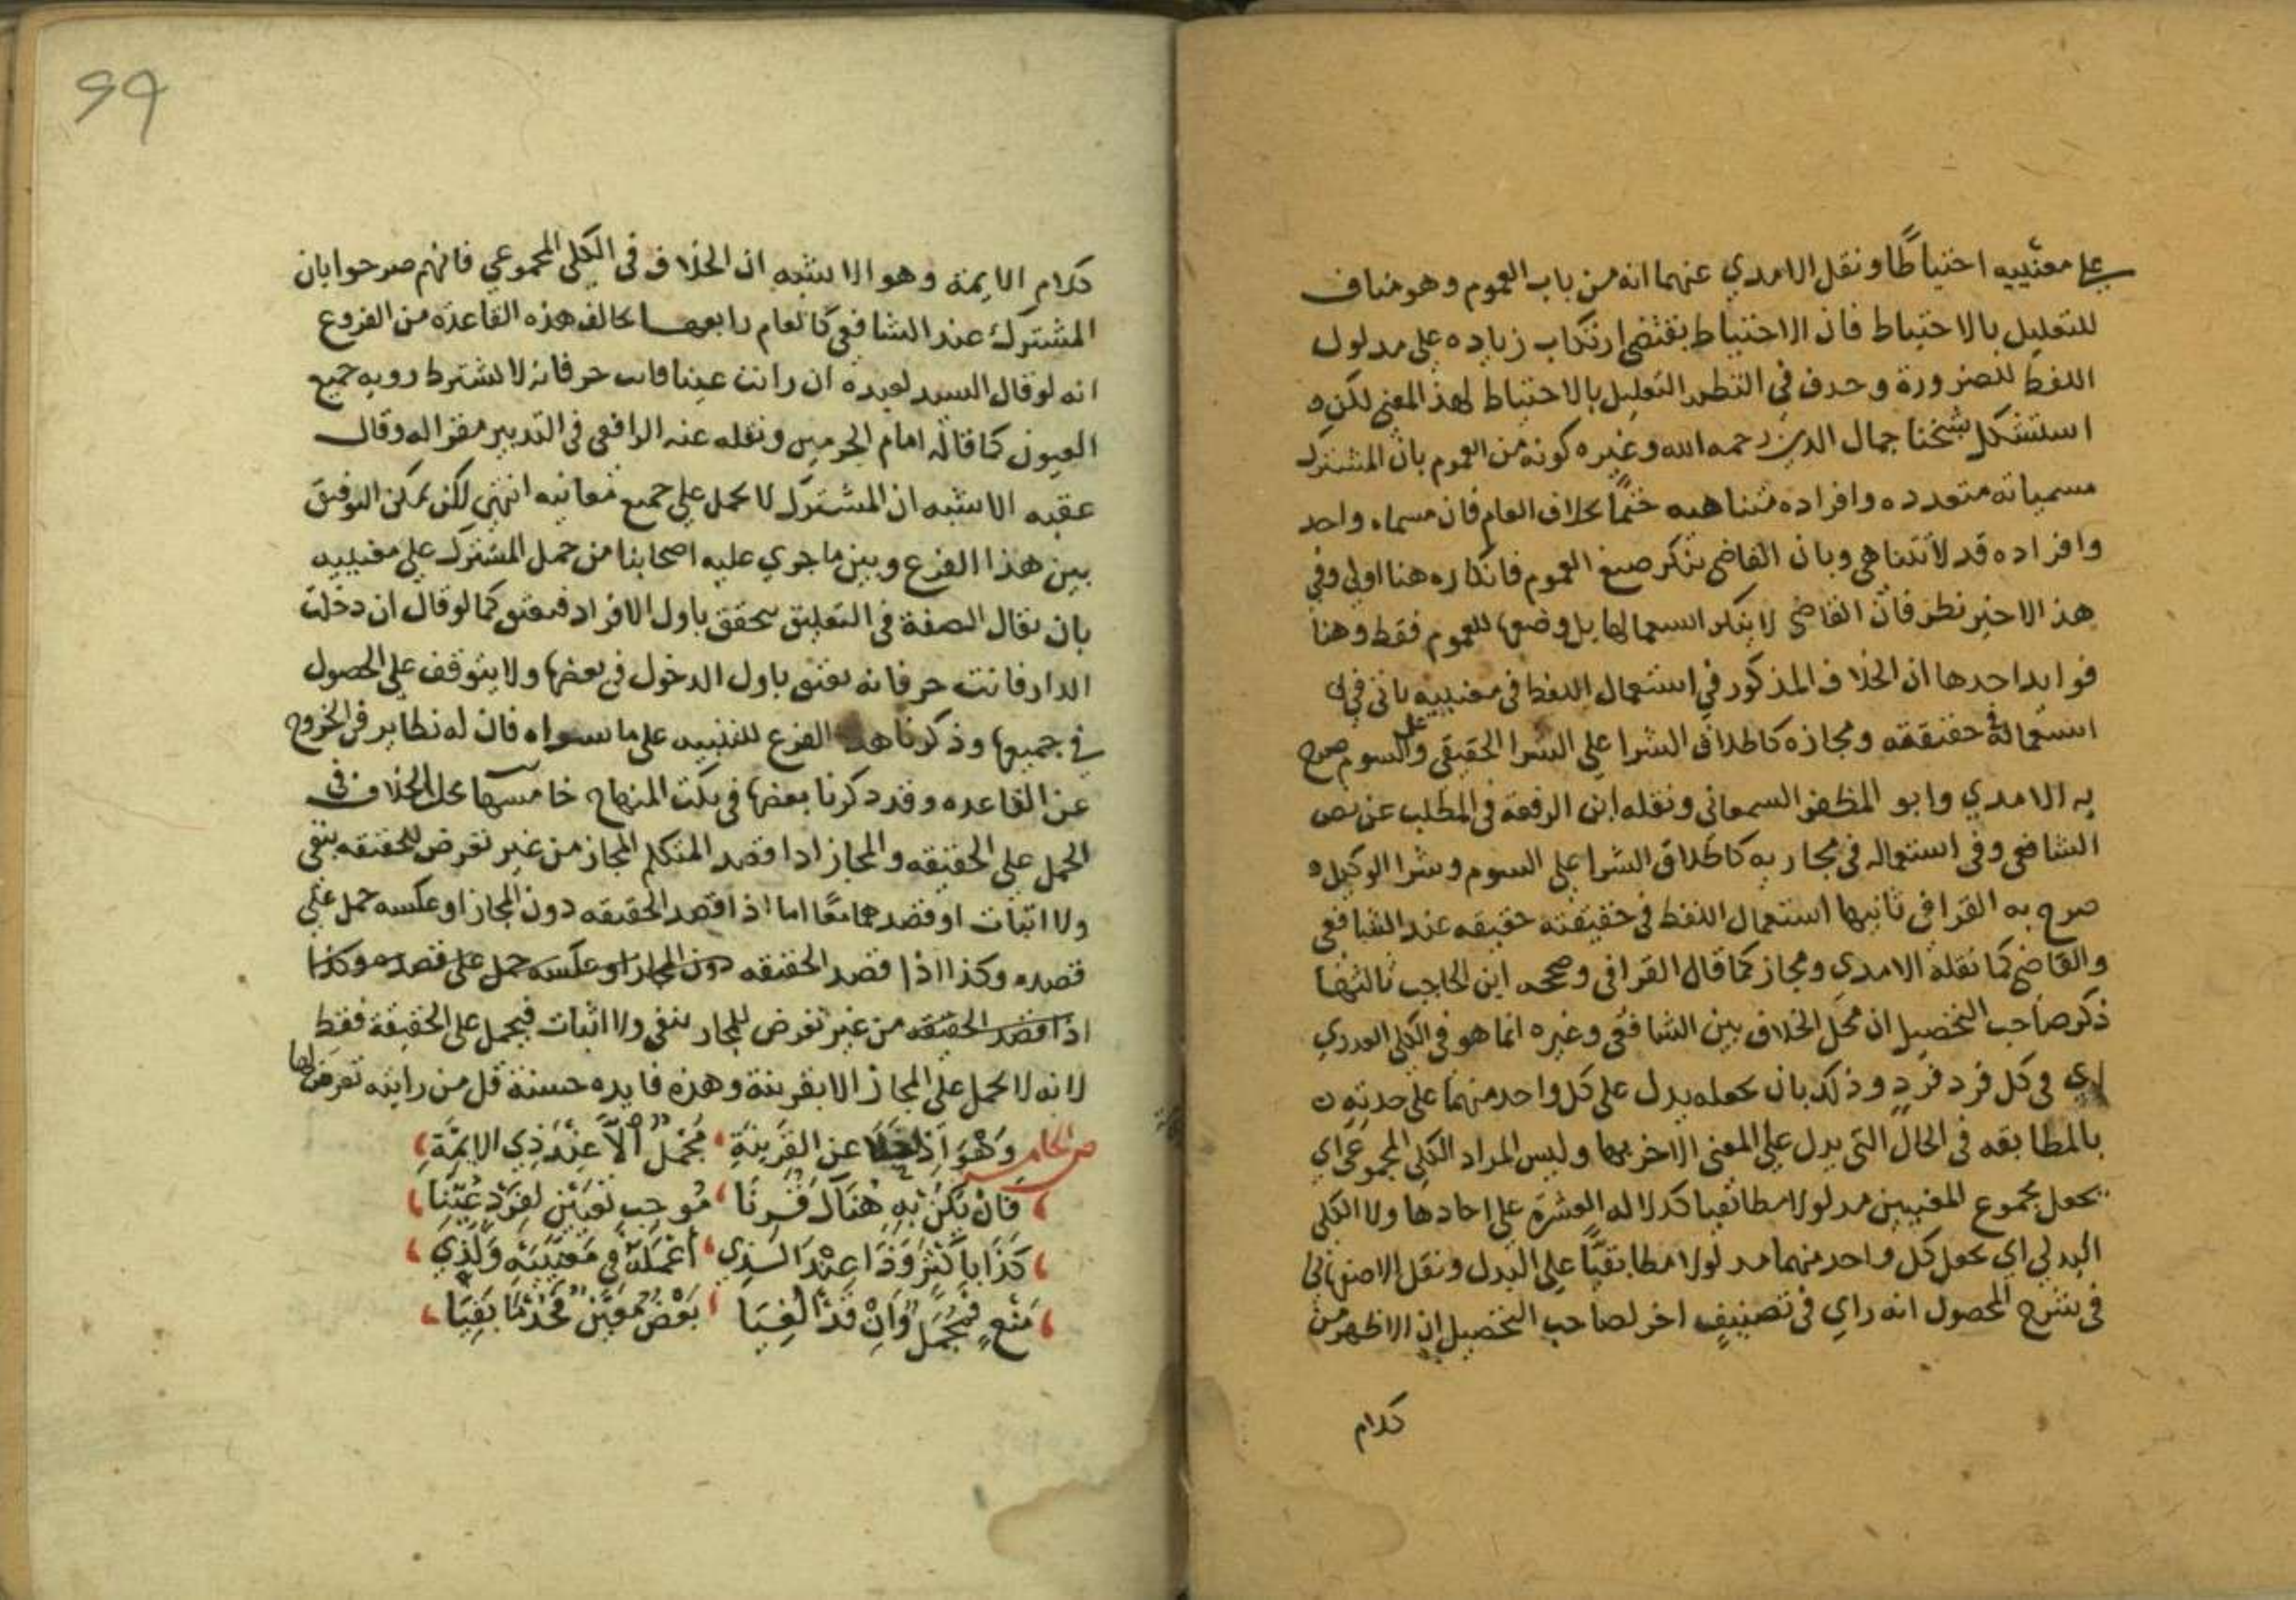 علي معنييه احتياطًا ونقل الامدي عنهما انه من باب العموم وهو مناف
للتعليل بالاحتياط فان الاحتياط يقتضي ارتكاب زياده علي مدلول
اللفظ للضرورة وحدف في النظم التعليل بالاحتياط لهذا المعني لكن
استشكل شيخنا جمال الدين رحمه الله وغيره كونه من العموم بان المشترك
مسمياته متعدده وافراده متناهيه ختمًا بخلاف العام فان مسماه واحد
وافراده قد لا تتناهي وبان القاضي ينكر صيغ العموم فانكاره هنا اولي وفي
هذا الاخير نظر فان القاضي لا ينكر استعمالها بل وضعها للعموم فقط وهنا
فوايد احدها ان الخلاف المذكور في استعمال اللفظ في معنييه ياتي في
استعماله في حقيقته ومجازه كاطلاق الشرا علي الشرا الحقيقي وعلي السوم صرح
به الامدي وابو المظفر السمعاني ونقله ابن الرفعة في المطلب عن نص
الشافعي وفي استعماله في مجازيه كاطلاق الشرا علي السوم وشرا الوكيل
صرح به القرافي ثانيها استعمال اللفظ في حقيقته حقيقه عند الشافعي
والقاضي كما نقله الامدي ومجاز كما قال القرافي وصححه ابن الحاجب ثالثها
ذكر صاحب التحصيل ان محل الخلاف بين الشافعي وغيره انما هو في الكلي العددي
اي في كل فرد فرد وذلك بان يجعله يدل علي كل واحد منهما علي حدته
بالمطابقه في الحال التي يدل علي المعني الاخر بها وليس المراد الكلي المجموعي اي
يجعل مجموع المعنيين مدلولا مطابقيا كدلاله العشرة علي احادها ولا الكلي
البدلي اي يجعل كل واحد منهما مدلولا مطابقيًا علي البدل ونقل الاصفهاني
في شرح المحصول انه راي في تصنيف اخر لصاحب التحصيل ان الاظهر من
كلام
99
كلام الايمة وهو الاشبه ان الخلاف في الكلي المجموعي فانهم صرحوا بان
المشترك عند الشافعي كالعام رابعها خالف هذه القاعدة من الفروع
انه لو قال السيد لعبده ان رايت عينا فانت حر فانه لا يشترط رويه جميع
العيون كما قاله امام الحرمين ونقله عنه الرافعي في التدبير مقرا له وقال
عقبه الاشبه ان المشترك لا يحمل علي جميع معانيه انتهي لكن يمكن التوفيق
بين هذا الفرع وبين ما جري عليه اصحابنا من حمل المشترك علي معنييه
بان يقال الصفة في التعليق يتحقق باول الافراد فيعتق كما لو قال ان دخلت
الدار فانت حر فانه يعتق باول الدخول في بعضها ولا يتوقف علي الحصول
في جميعها وذكرنا هذا الفرع للتنبيه علي ما سواه فان له نظاير في الخروج
عن القاعده وقد ذكرنا بعضها في نكت المنهاج خامسها محل الخلاف في
الحمل علي الحقيقه والمجاز اذا قصد المتكلم المجاز من غير تعرض للحقيقه بنفي
ولا اثبات او قصدهما معًا اما اذا قصد الحقيقه دون المجاز او عكسه حمل علي
قصده وكذا اذا قصد الحقيقه دون المجاز او عكسه حمل علي قصده وكذا
اذا قصد الحقيقه من غير تعرض للمجاز بنفي ولا اثبات فيحمل علي الحقيقة فقط
لانه لا يحمل علي المجاز الا بقرينة وهذه فايده حسنة قل من رايته تعرض لها
ص وَهْوَ اِذَا خَلَا عن القَرِينَةِ ، مُجْمَلٌ الَّا عِنْدَ ذِي الايمَّةِ ،
، فَانْ يَكُنْ بِهِ هُنَاكَ قُرِنَا ، مُوجب تَعيين لِفَرْد عُيّنَا ،
، كَذَا بِأكْثَرَ وَذَا عِنْدَ الَّذِي ، أَعْمَلَهُ في مَعْنَيَيْهِ وَلِذِي ،
، مَنْعٍ فَمُجْمَلٌ وَاِنْ قَدْ أُلْغِيَا ، بَعْضٌ مُعَيَّنٌ فَخُذْ مَا بَقِيَا ،